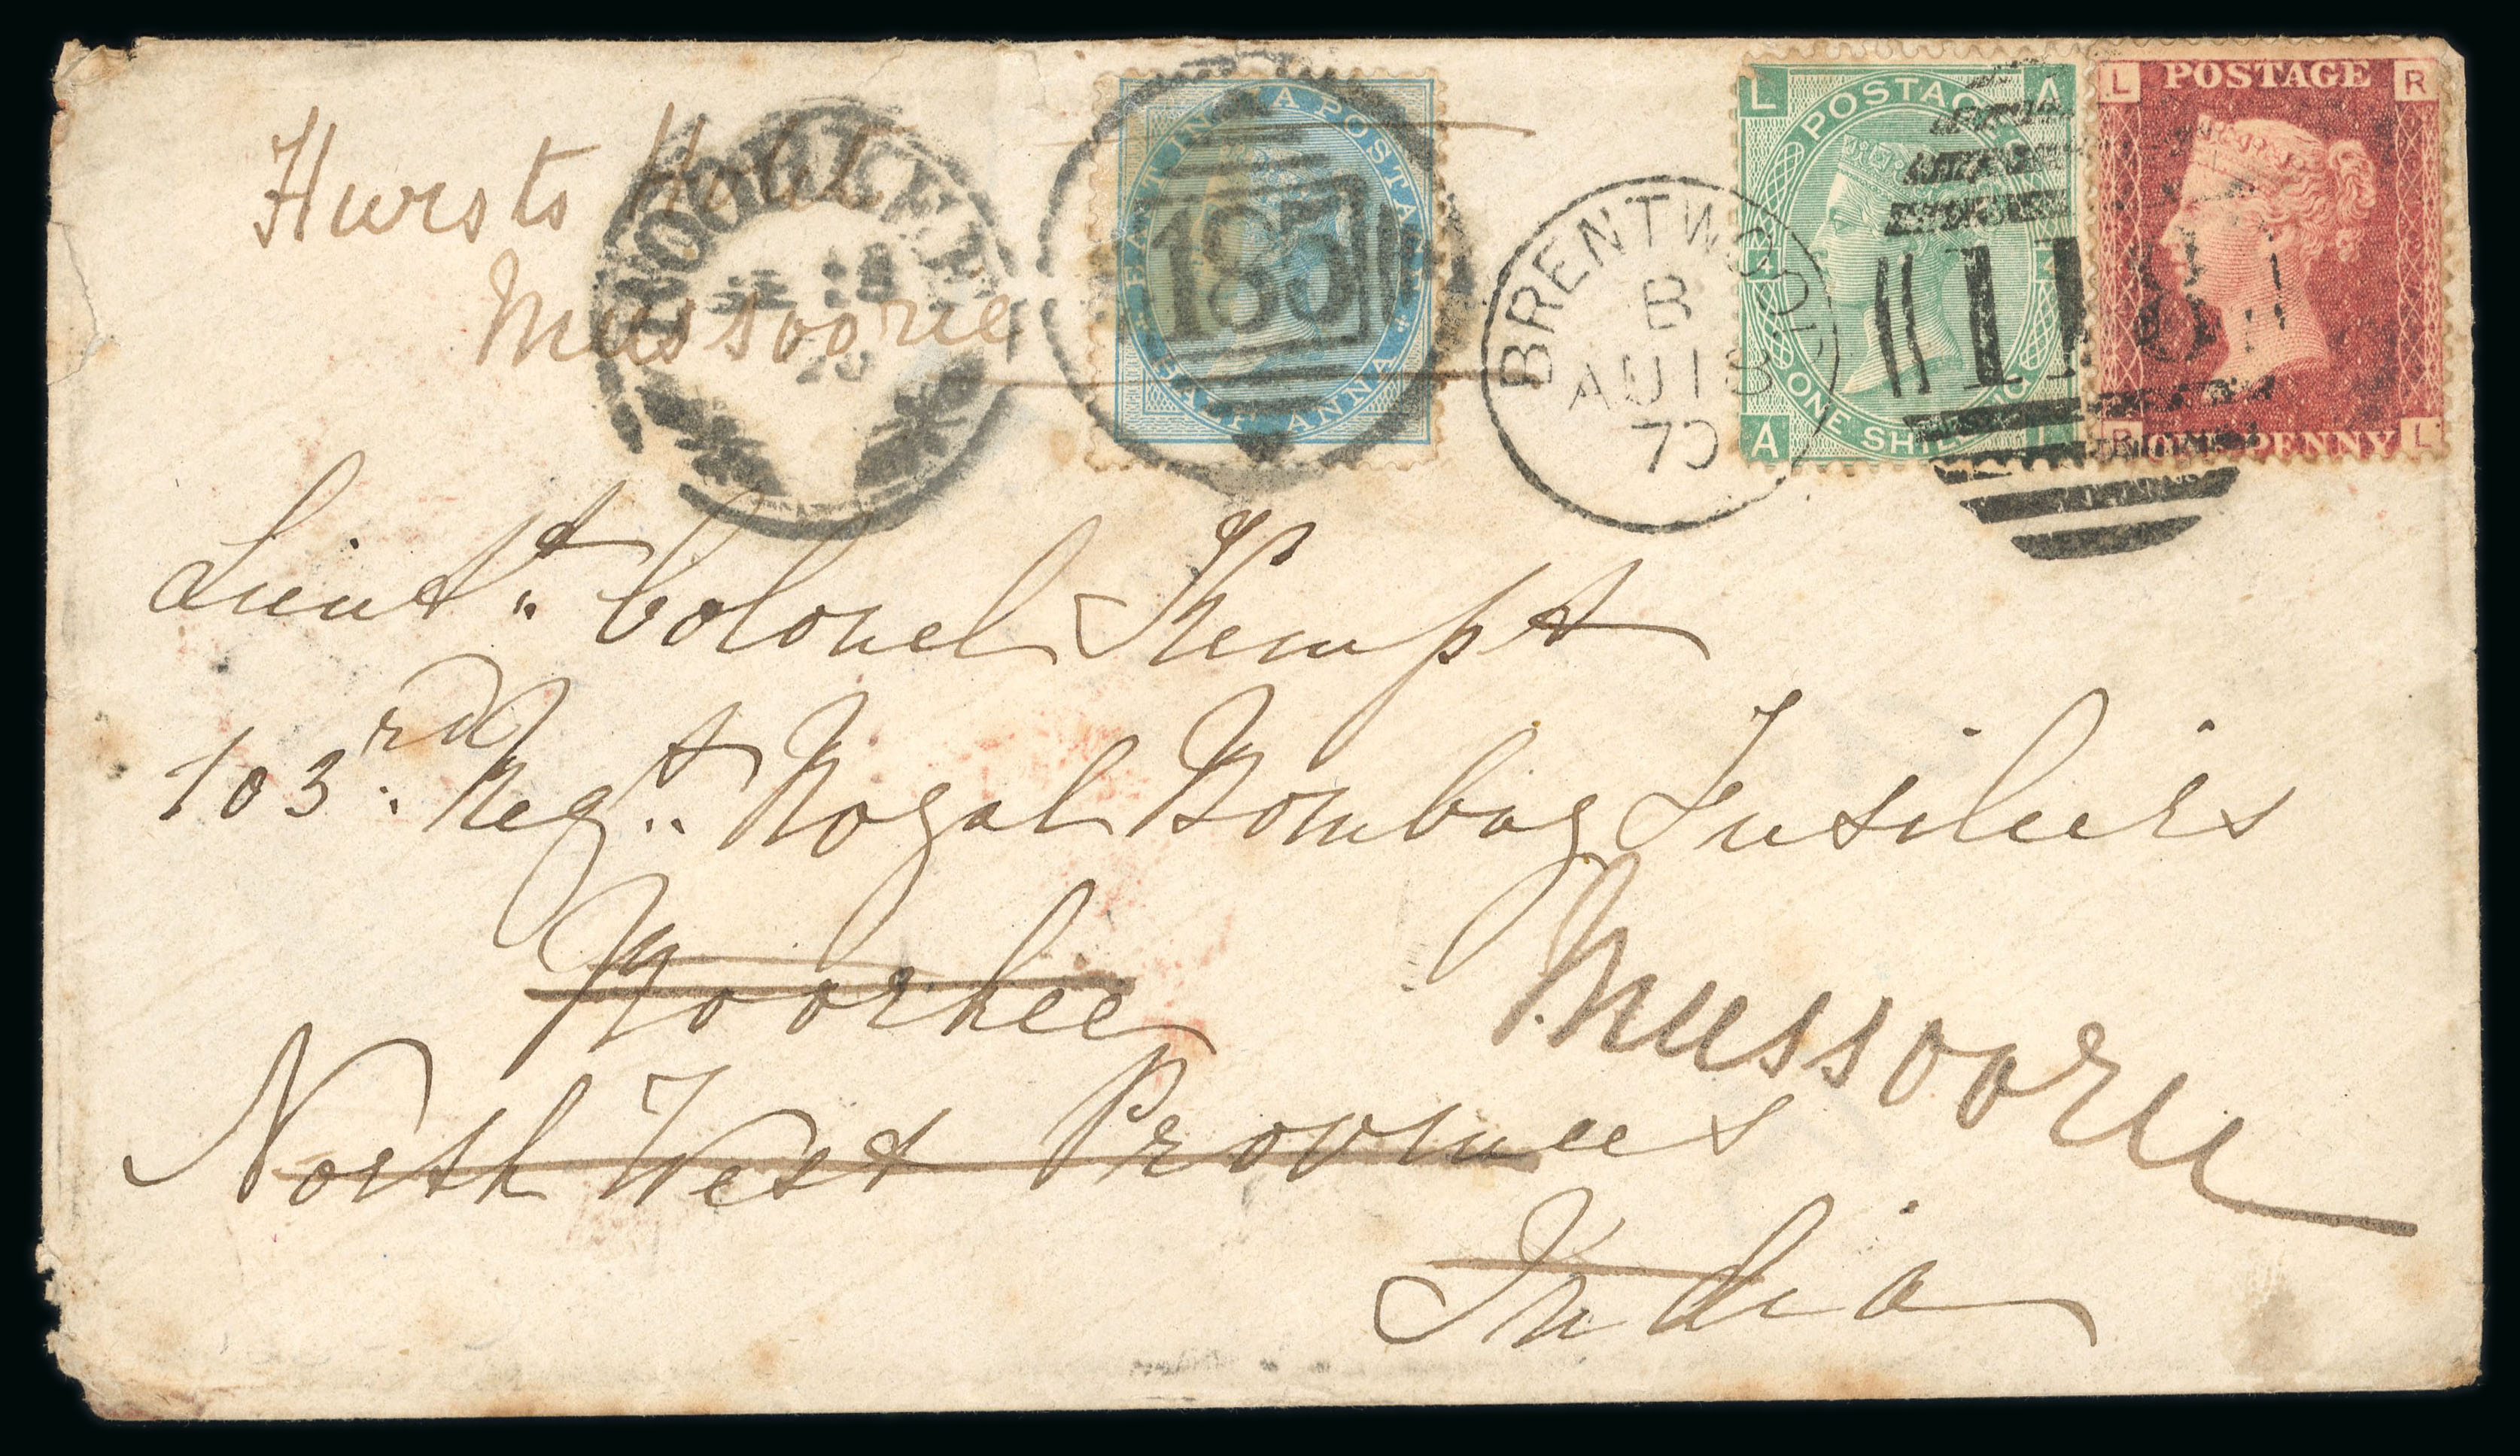 Hursts Hotel
Mussoorie
NOORKEE
SE 18
70
EAST INDIA POSTAGE
185
HALF ANNA
BRENTWOOD
B
AU 18
70
L A
POSTAGE
4 4
ONE SHILLING
A L
118
L POSTAGE R
R ONE PENNY L
Lieut. Colonel Kempt
103rd. Regt. Royal Bombay Fusileirs
Roorkee
Mussoorie
North West Provinces
India